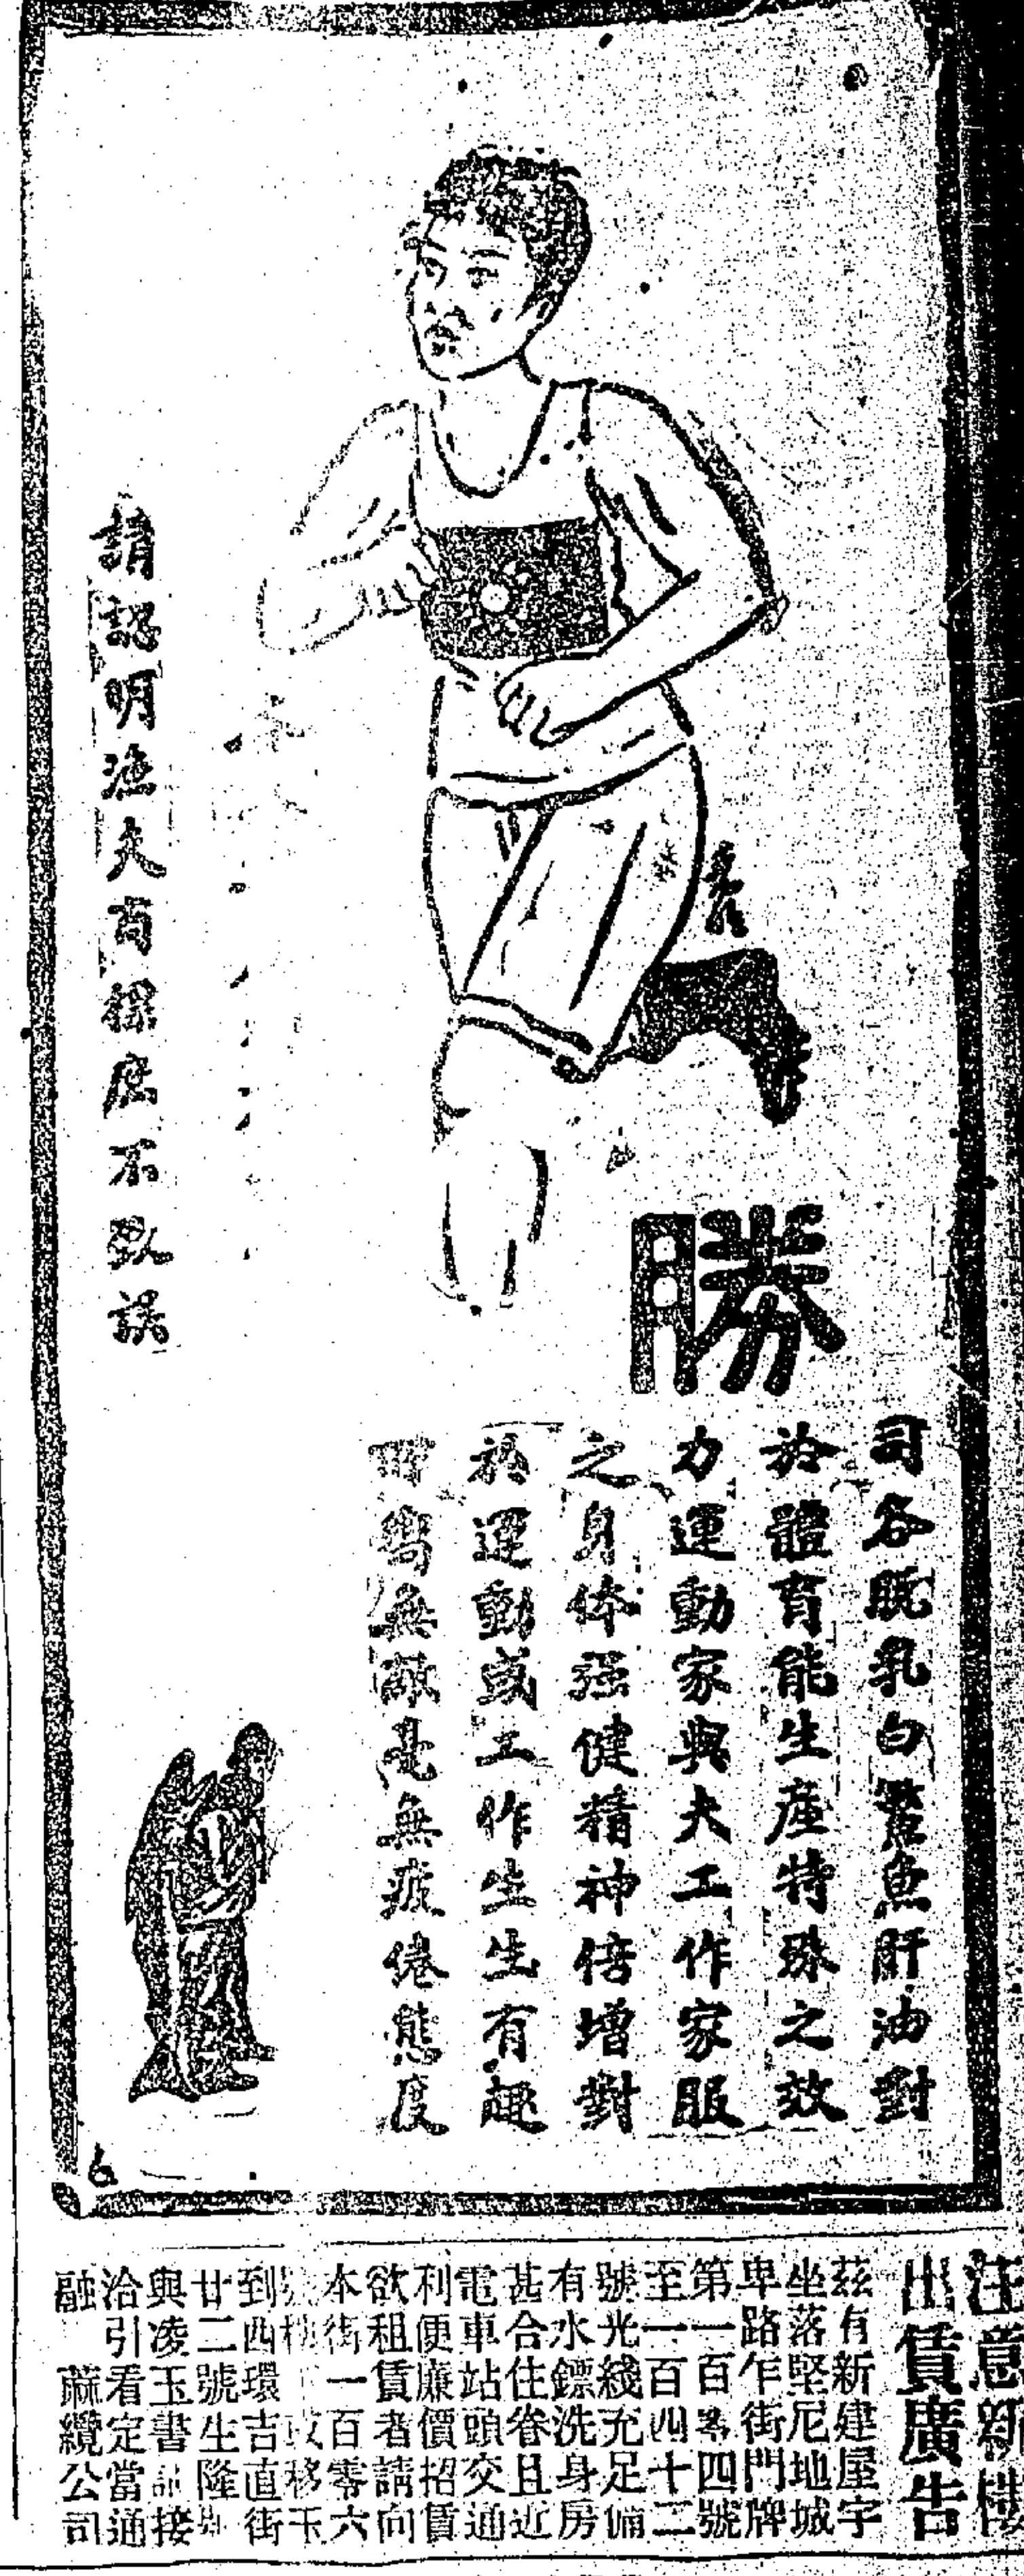 勝
司各脱乳白鰵魚肝油對
於體育能生產特殊之效
力運動家與大工作家服
之身体强健精神倍增對
於運動或工作生生有趣
無 毫無疲倦態度
請認明漁夫商標庶不致誤
注意新樓
出賃廣告
茲有新建屋宇
坐落堅尼地城
卑路乍街門牌
第一百零四號
至一百四十二
號光綫充足備
有水鏢洗身房
甚合住眷且近
電車站頭交通
利便廉價招賃
欲租賃者請向
本街一百零六
號 或移玉
到西環吉直街
廿二號生隆
與凌玉書 接
洽引看定當通
融 蔴纜公司